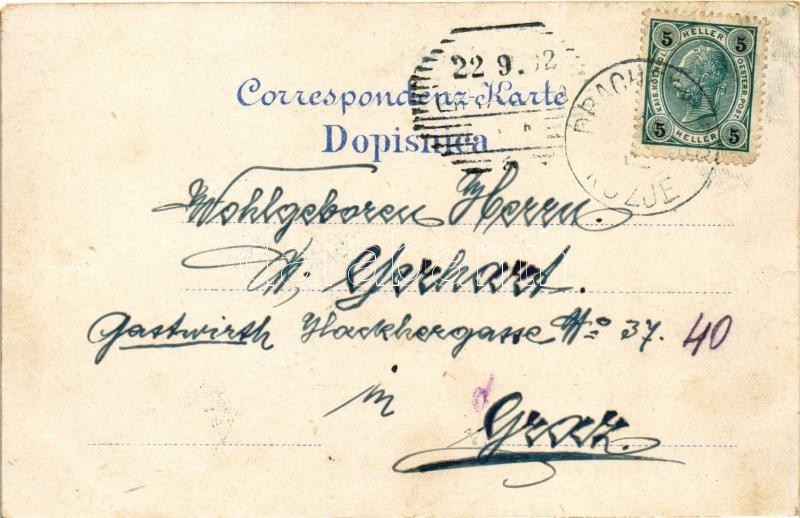 22 9. 02
5 HELLER 5
KAIS. KOENIGL.
OESTERR. POST
5 HELLER 5
Correspondenz-Karte
Dopisnica
KOZJE
Wohlgeboren Herrn.
Gerhart.
Gastwirth Hackhergasse No 37. 40
in
Graz.